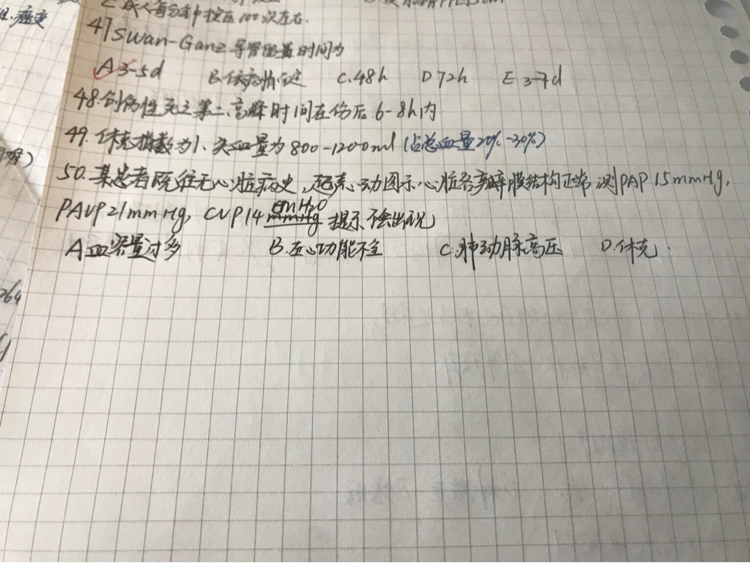 C.成人每分钟按压100次左右.
47 Swan-Ganz导管留置时间为
A 3-5d B.依病情定 C.48h D 72h E 3-7d
48.创伤性死亡第二高峰时间在伤后6-8h内
49.休克指数为1、失血量为800-1200ml (占总血量20%-30%)
50.某患者既往无心脏病史,超声心动图示心脏各瓣膜结构正常 测PAP 15mmHg,
PAWP 21mmHg, CVP 14 mmHg cmH2O 提示不会出现
A血容量过多 B.左心功能不全 C.肺动脉高压 D.休克.
264